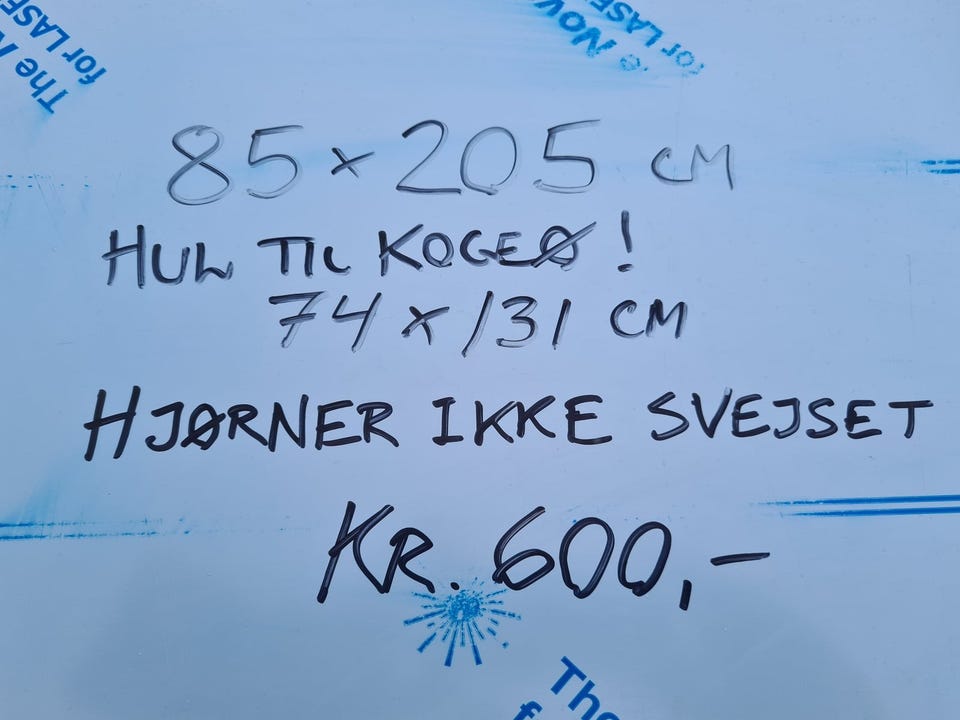 The N
for LASE
Nov
for LASE
85 x 205 CM
HUL TIL KOGEØ!
74 x 131 CM
HJØRNER IKKE SVEJSET
KR. 600,-
The
f